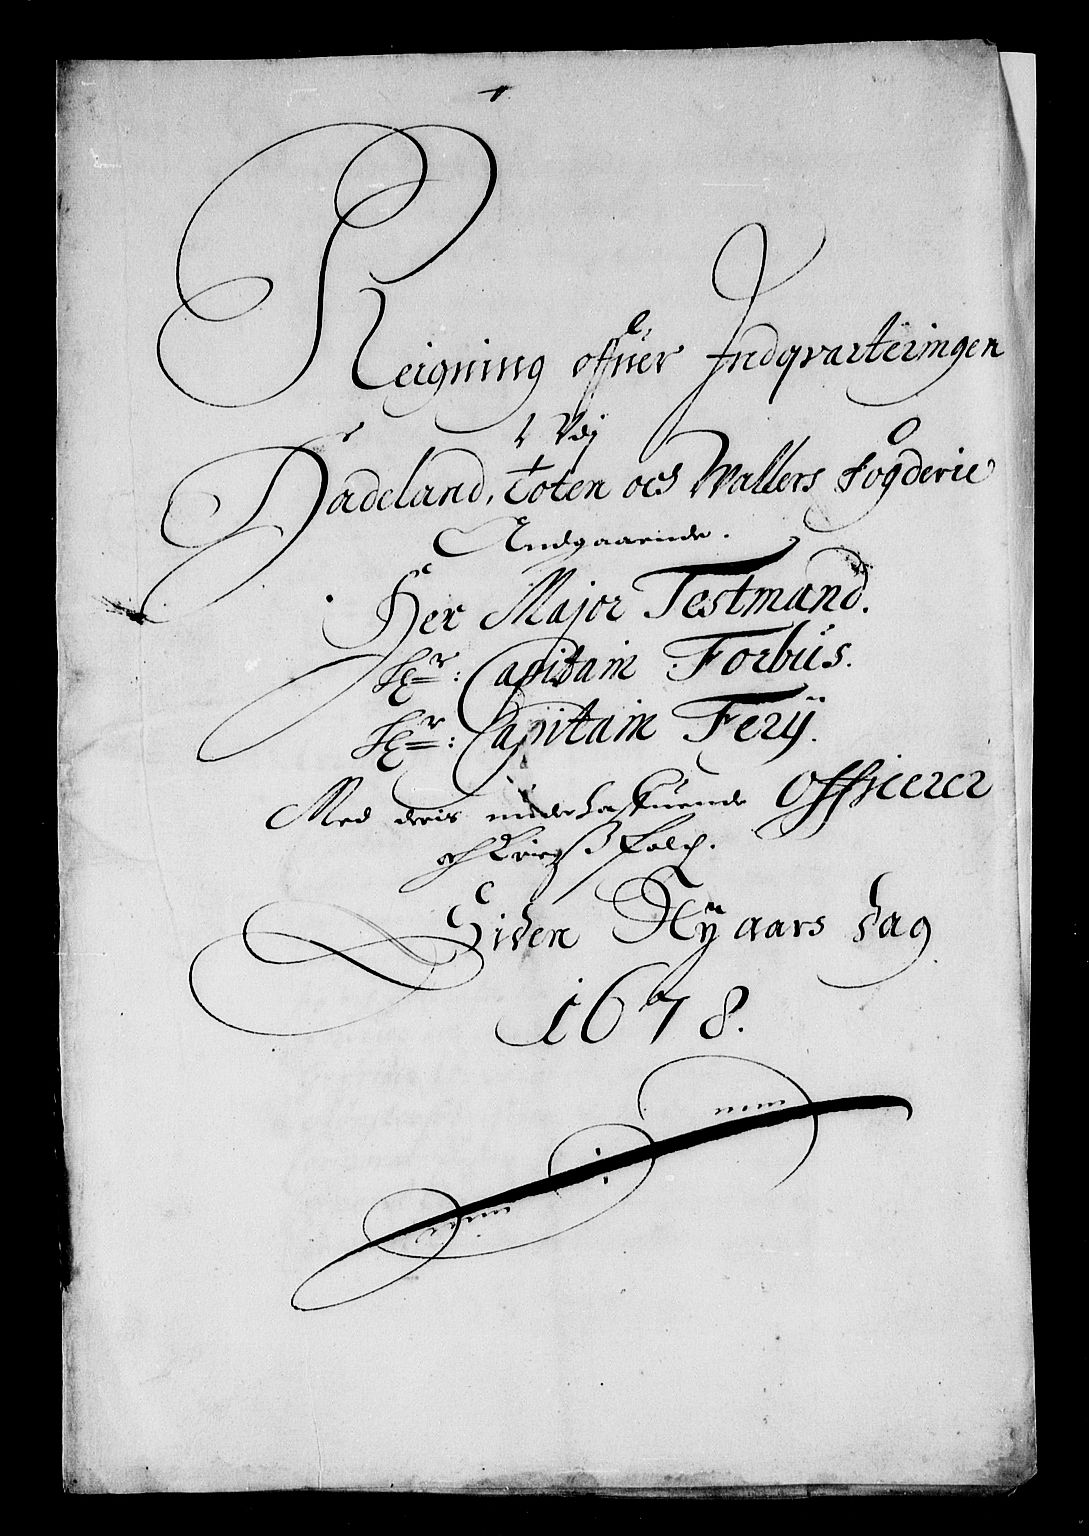 Reigning offuer Indqvarteringen
Udj
Hadeland, Toten och Wallers Fogderie
Andgaaende.
Her Major Testmand.
Hr: Capitain Forbus.
Hr: Capitain Ferij.
Med deris underhafuende Officerer
och Krigs folch.
Siden Nÿ aars dag
1678.